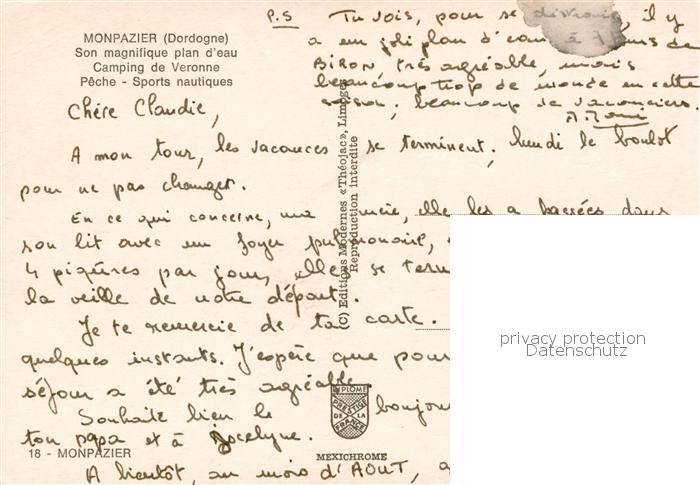 MONPAZIER (Dordogne)
Son magnifique plan d'eau
Camping de Veronne
Pêche - Sports nautiques
P.S Tu vois, pour se distraire, il y
a un joli plan d'eau à de
BIRON très agréable, mais
beaucoup trop de monde en cette
saison, beaucoup de vacanciers
Chère Claudie,
A mon tour, les vacances se terminent, lundi le boulot
pour ne pas changer.
En ce qui concerne, ma elle les a passées dans
son lit avec un foyer pulmonaire,
4 piqûres par jour, elles se
la veille de notre départ.
Je te remercie de ta carte.
quelques instants. J'espère que pour
séjour a été très agréable.
Souhaite bien le bonjour
ton papa et à Jocelyne.
A bientôt, au mois d'AOUT,
18 - MONPAZIER
(C) Editions Modernes «Théojac», Limoges
Reproduction interdite
DIPLOME
PRESTIGE
DE LA
FRANCE
MEXICHROME
privacy protection
Datenschutz